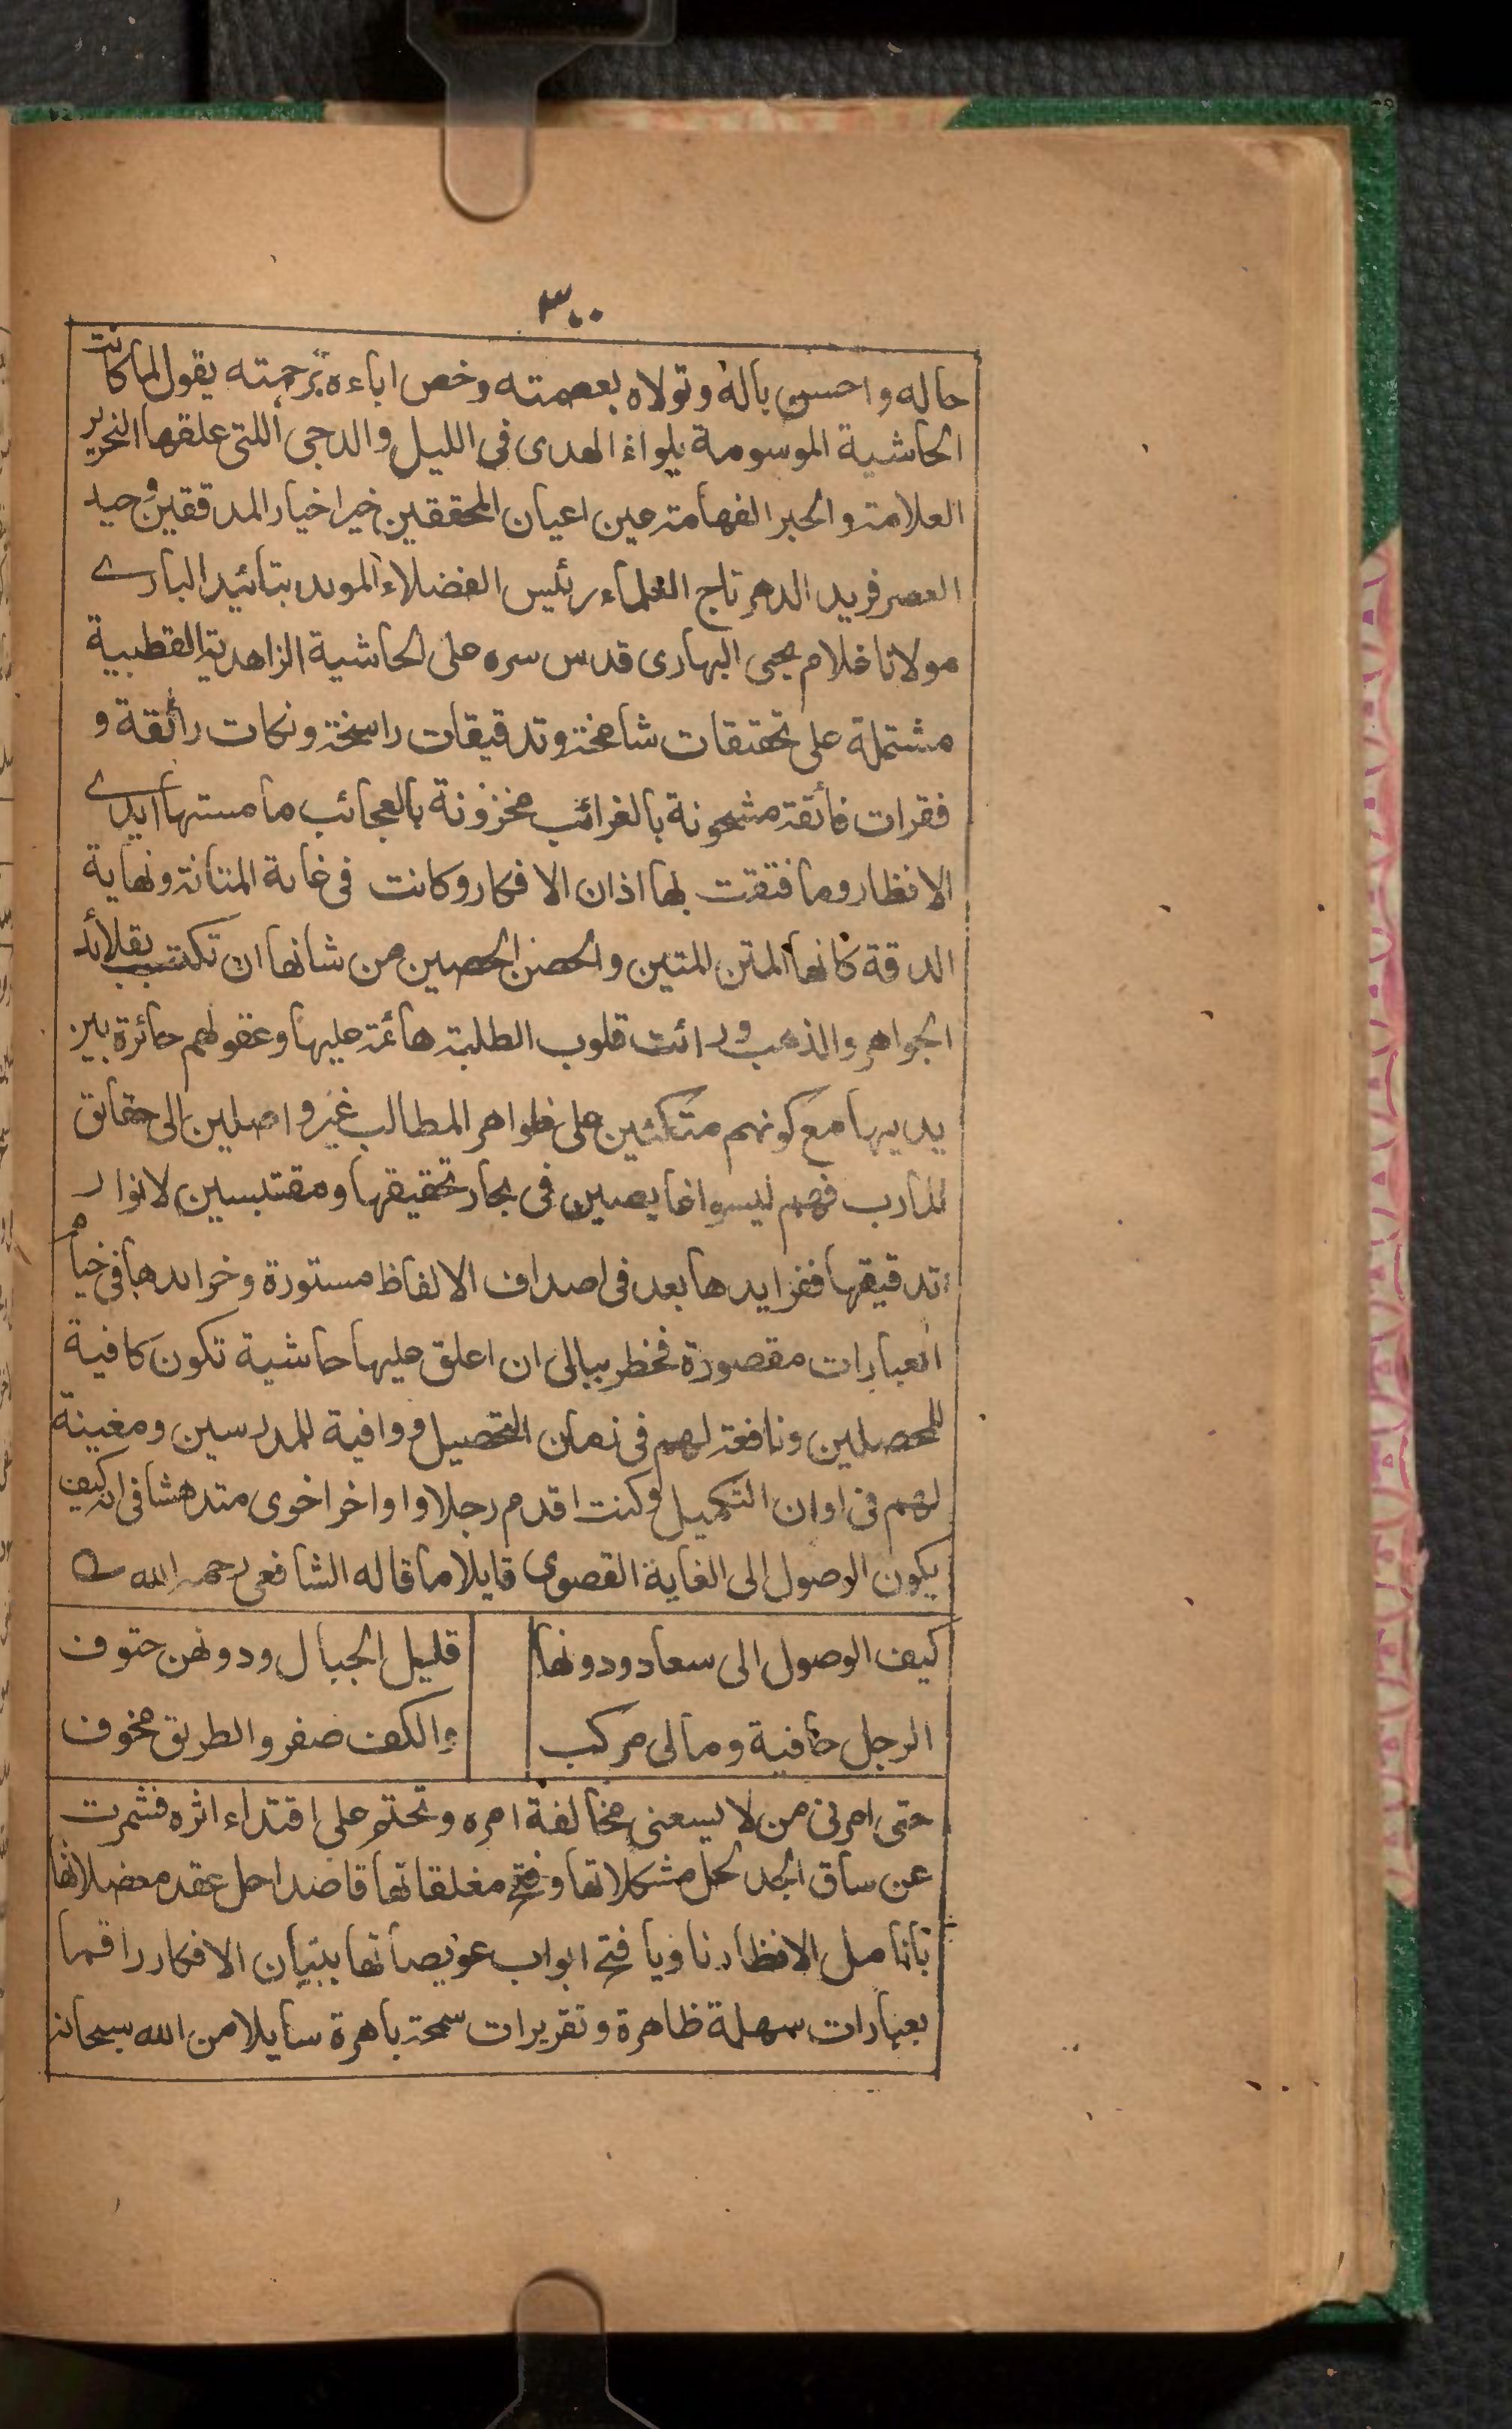 ٣٠٠
حاله واحسن باله وتولاه بعصمته وخص اباءه برحمته يقول لما كانت
الحاشية الموسومة بلواء الهدى فى الليل والدجى اللتى علقها النحرير
العلامة والحبر الفهامة عين اعيان المحققين خير اخيار المدققين وحيد
العصر فريد الدهر تاج العلماء رئيس الفضلاء الموید بتائيد البارے
مولانا غلام يحيى البهارى قدس سره على الحاشية الزاهدية القطبية
مشتملة على تحقيقات شامخة وتدقيقات راسخة ونكات رائقة و
فقرات فائقة مشحونة بالغرائب مخزونة بالعجائب ما مستها ايدے
الانظار وما فتقت بها اذان الافكار وكانت فى غاية المتانة ونهاية
الدقة كانها المتن المتين والحصن الحصين من شانها ان تكتب بقلائد
الجواهر والذهب ورائت قلوب الطلبة هائمة عليها وعقولهم حائرة بين
يديها مع كونهم متكئين على ظواهر المطالب غير واصلين الى حقائق
المارب فهم ليسوا غايصين فى بحار تحقيقها ومقتبسين لانوار
تدقيقها ففرايدها بعد فى اصداف الالفاظ مستورة وخرايدها فى خيام
العبارات مقصورة فخطر ببالى ان اعلق عليها حاشية تكون كافية
للمحصلين ونافعة لهم فى زمان التحصيل ووافية للمدرسين ومغينة
لهم فى اوان التكميل وكنت اقدم رجلا واواخر اخرى متدهشا فى انه كيف
يكون الوصول الى الغاية القصوى قايلا ما قاله الشافعى رحمه الله
كيف الوصول الى سعاد ودونها قليل الجبال ودونهن حتوف
الرجل حافية ومالى مركب والكف صفر والطريق مخوف
حتى امرنى من لا يسعنى مخالفة امره وتحتم على اقتداء اثره فشمرت
عن ساق الجد لحل مشكلاتها وفتح مغلقاتها قاصدا حل عقد معضلاتها
بانامل الانظار ناويا فتح ابواب عويصاتها ببنيان الافكار راقما
بعبارات سهلة ظاهرة وتقريرات سمحة باهرة سايلا من الله سبحانه